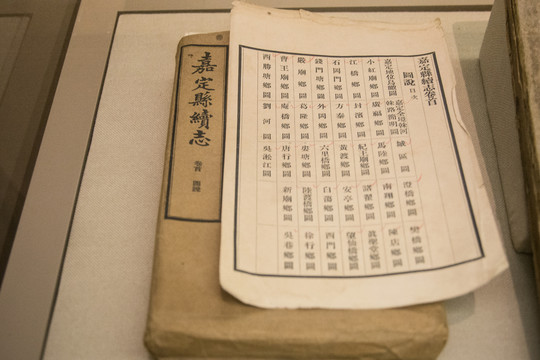 嘉定縣續志
卷首 圖說
嘉定縣續志卷首
圖說 目次
嘉定地位烏瞰圖 嘉定全境幹河幹路簡明圖 城區圖 澄橋鄉圖 樊橋鄉圖
小紅廟鄉圖 廣福鄉圖 馬陸鄉圖 南翔鄉圖 陳店鄉圖
江橋鄉圖 封濱鄉圖 杞王廟鄉圖 諸翟鄉圖 眞聖堂鄉圖
石岡門鄉圖 方泰鄉圖 黃渡鄉圖 安亭鄉圖 望仙橋鄉圖
錢門塘鄉圖 外岡鄉圖 六里橋鄉圖 白蕩鄉圖 西門鄉圖
嚴廟鄉圖 葛隆鄉圖 婁塘鄉圖 陸渡橋鄉圖 徐行鄉圖
曹王廟鄉圖 庵橋鄉圖 唐行鄉圖 新廟鄉圖 吳巷鄉圖
西勝塘鄉圖 劉河圖 吳淞江圖